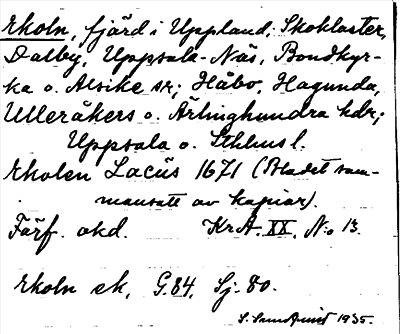 Ekoln, fjärd i Uppland: Skokloster,
Dalby, Uppsala-Näs, Bondkyr-
ka o. Alsike sr; Håbo, Hagunda,
Ulleråkers o. Ärlinghundra hdr;
Uppsala o. Sthlms l.
Ekolen Lacus 1671 (Bladet sam-
mansatt av kopior).
Förf. okd. KrA. XX, No 13.
Ekoln ek, G.84, Sj. 80.
1935.